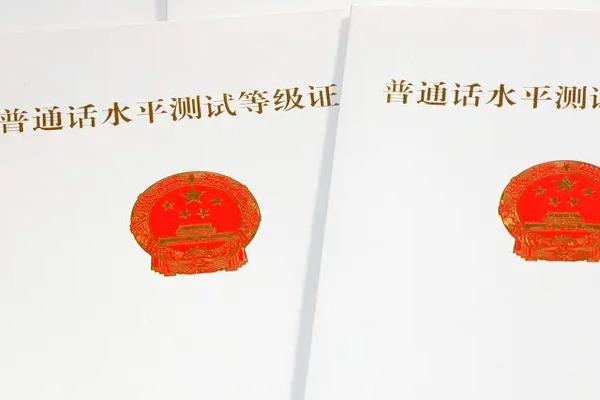 普通话水平测试等级证
普通话水平测